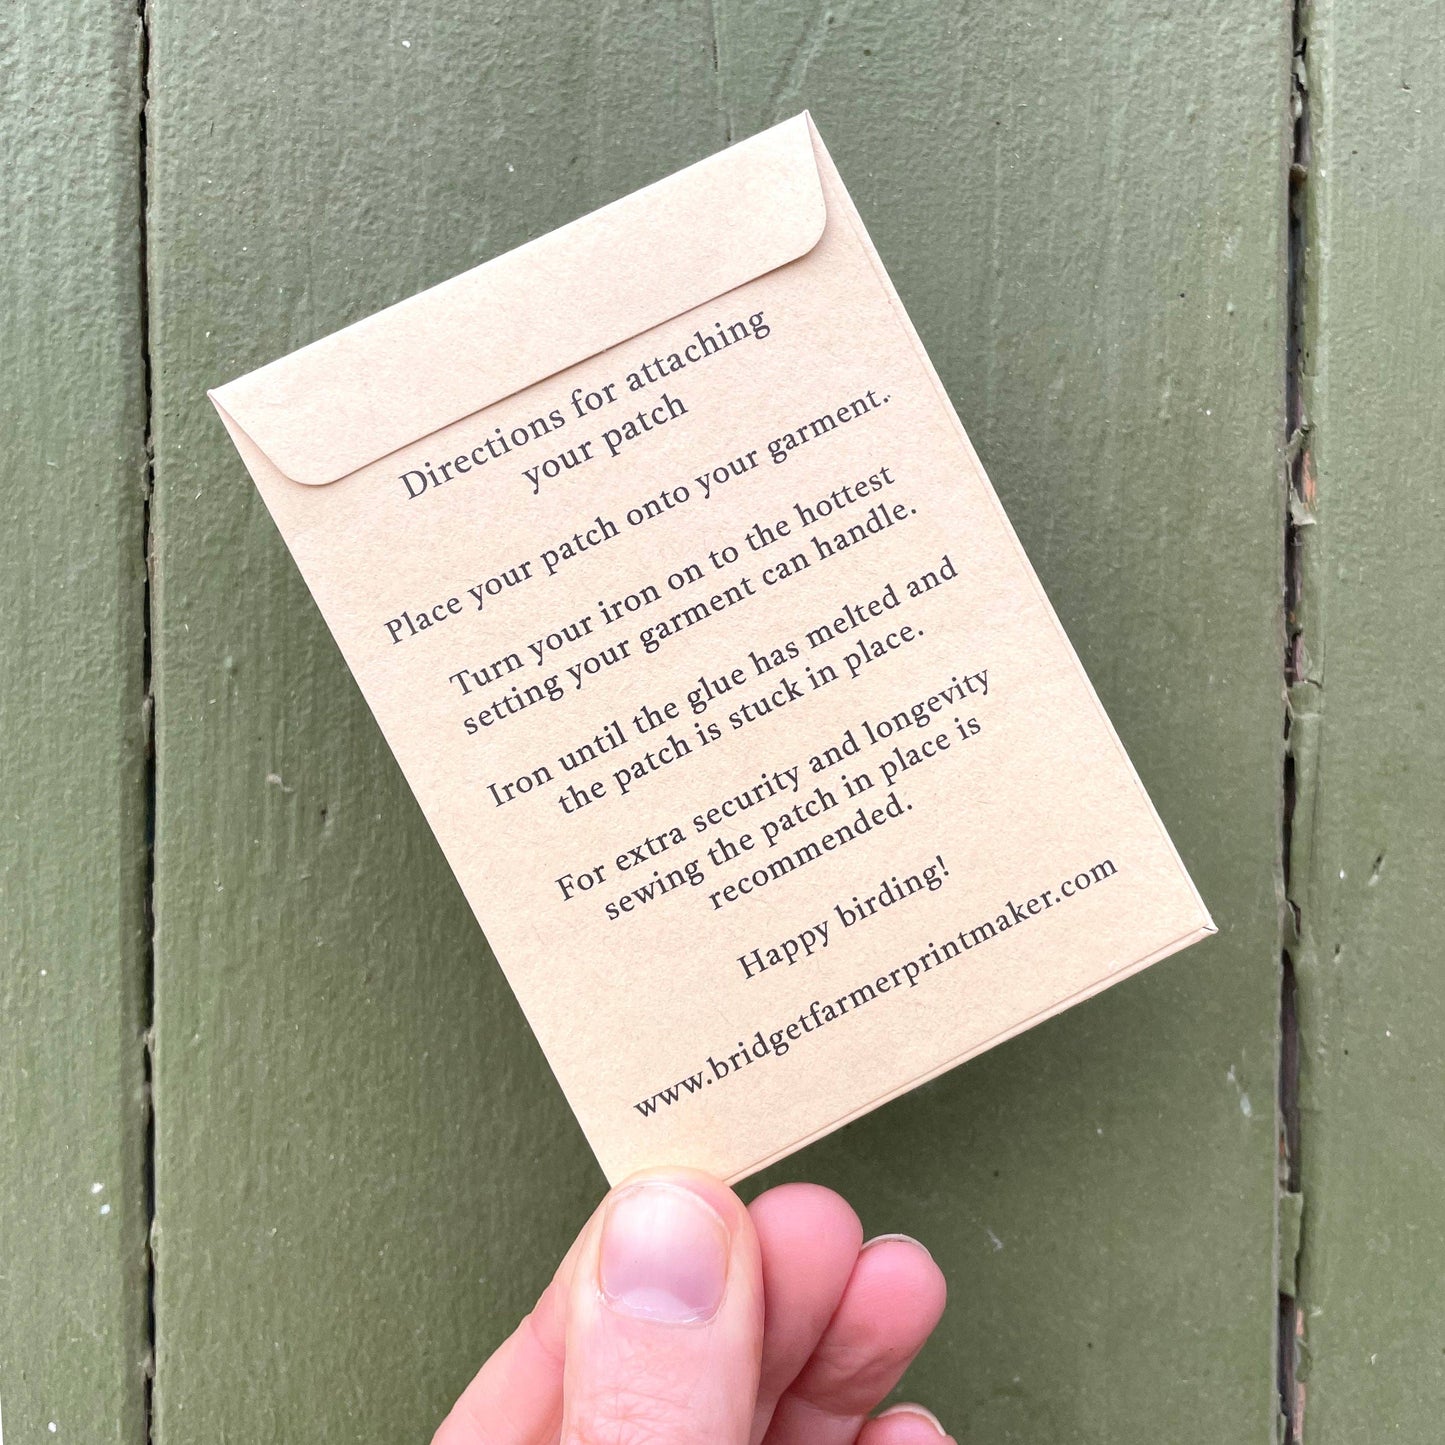 Directions for attaching
your patch
Place your patch onto your garment.
Turn your iron on to the hottest
setting your garment can handle.
Iron until the glue has melted and
the patch is stuck in place.
For extra security and longevity
sewing the patch in place is
recommended.
Happy birding!
www.bridgetfarmerprintmaker.com